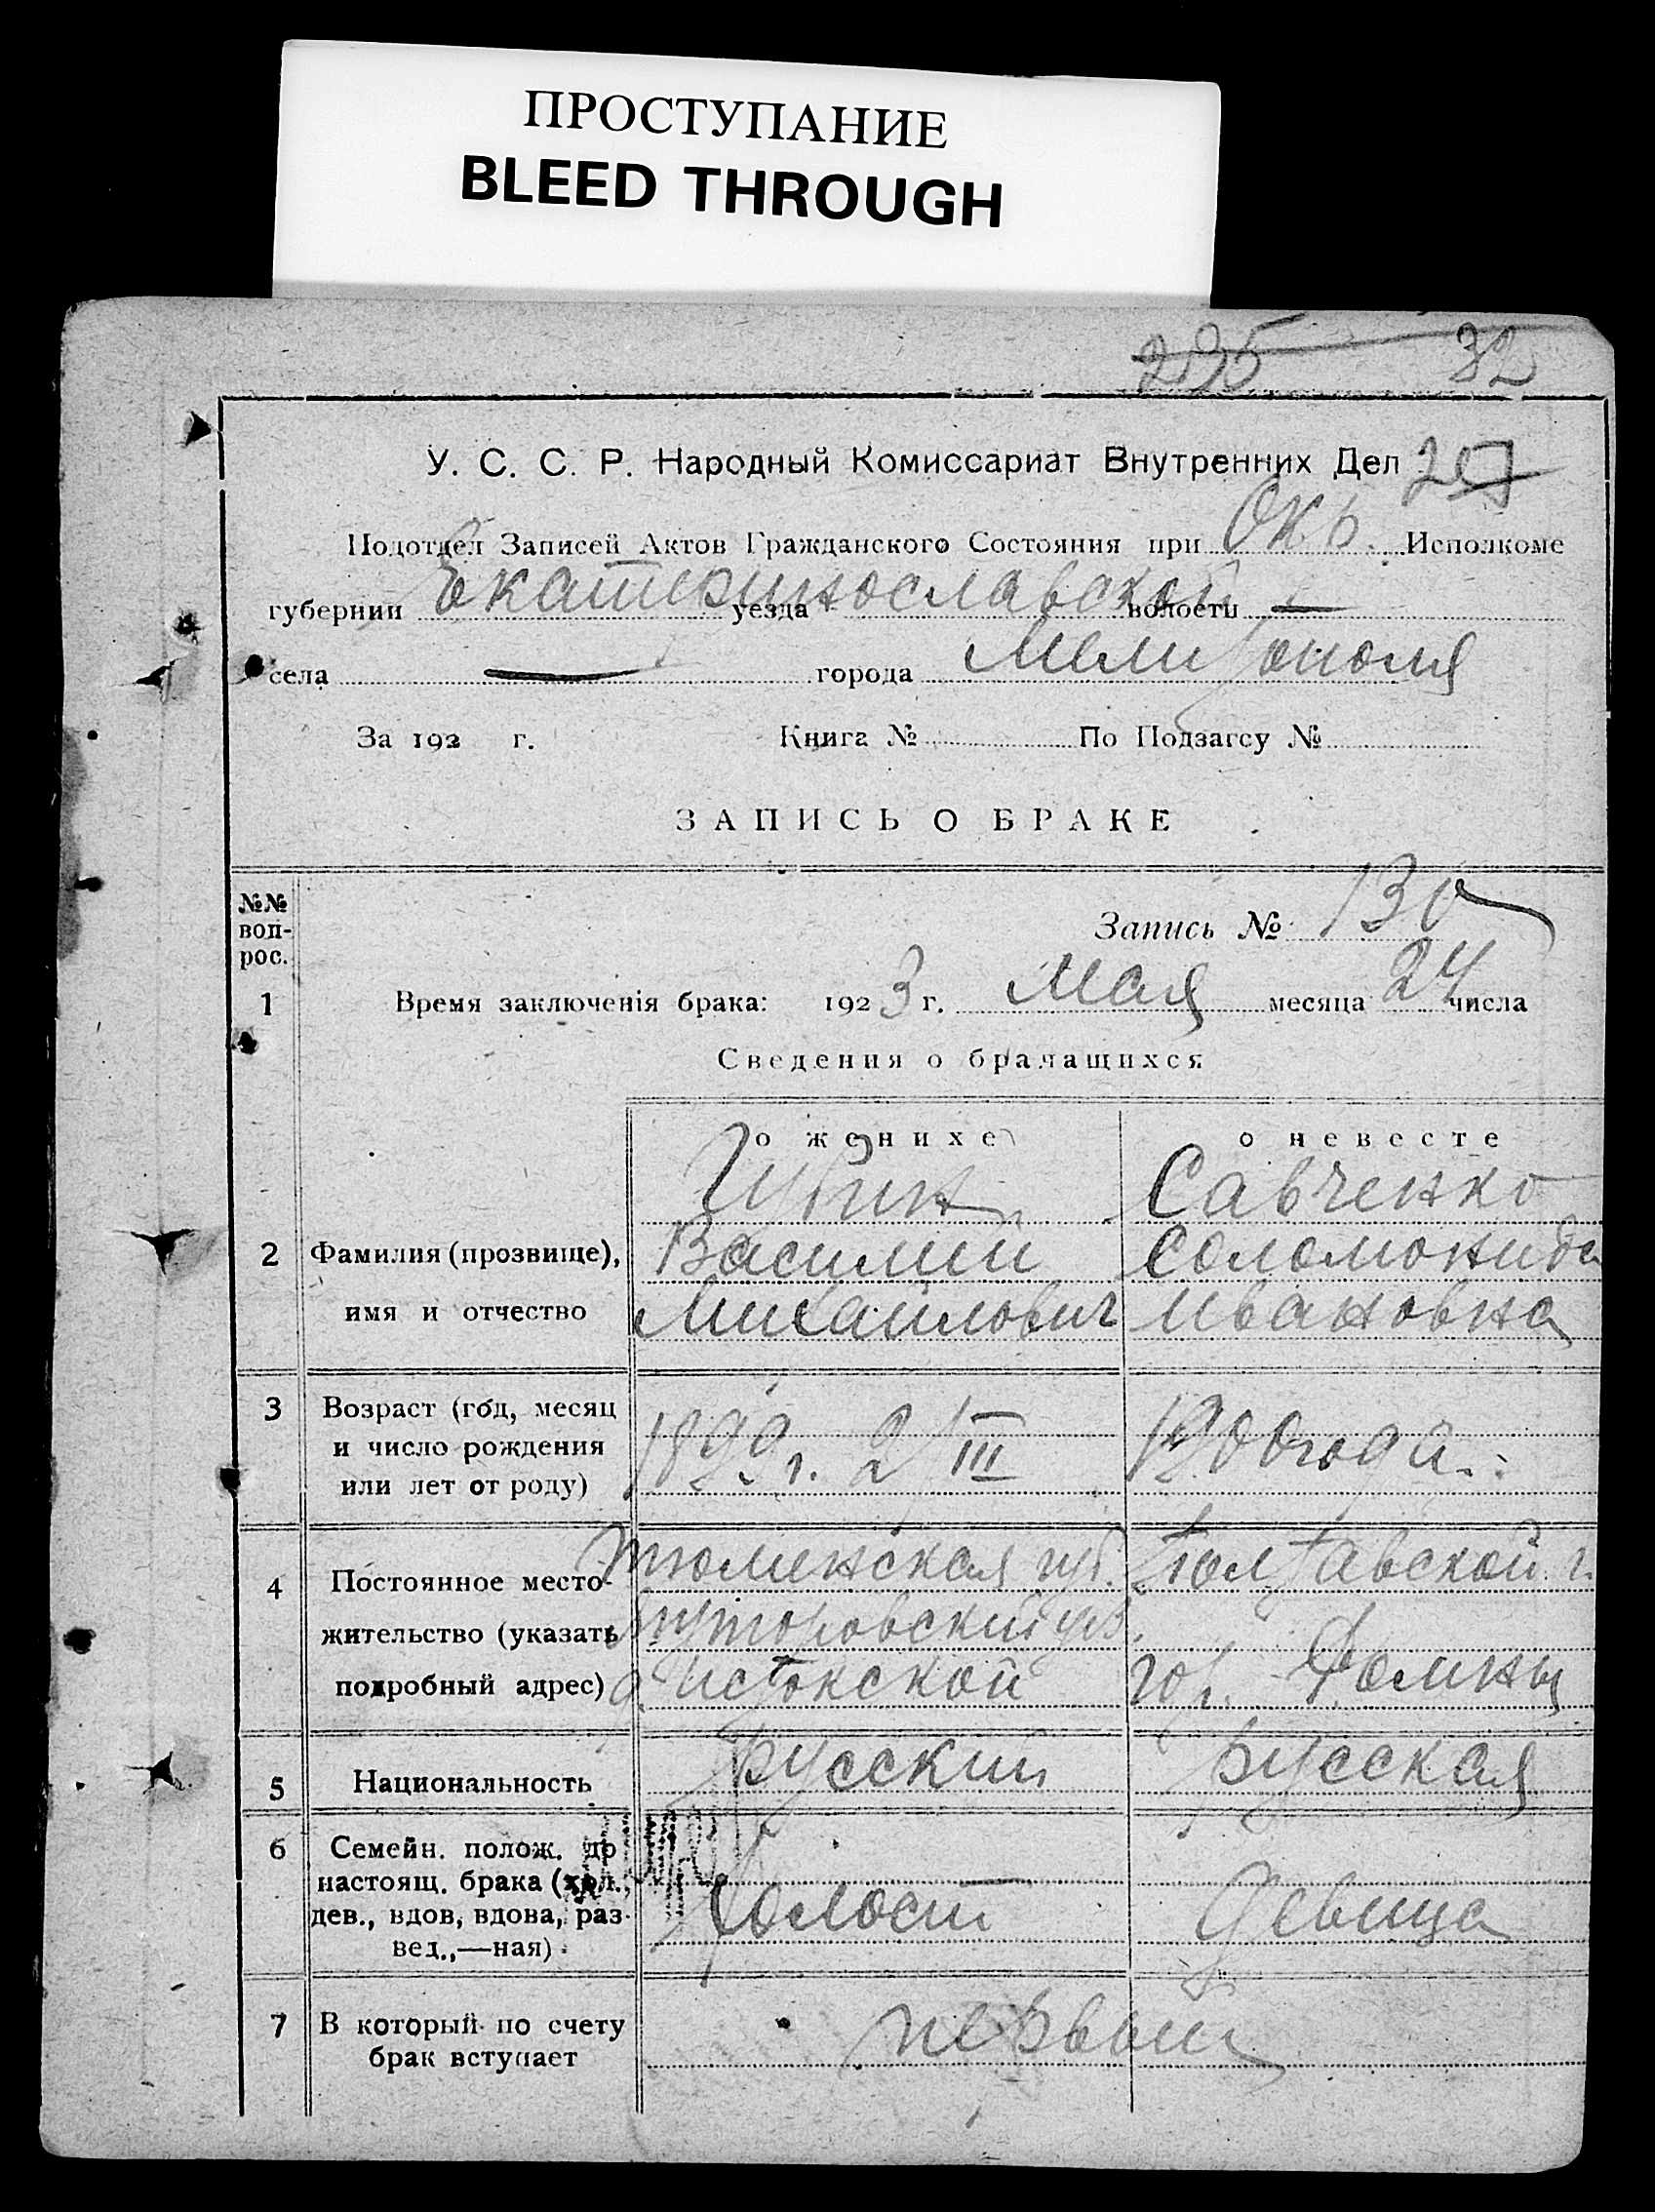 ПРОСТУПАНИЕ
BLEED THROUGH
235 32
У. С. С. Р. Народный Комиссариат Внутренних Дел
Подотдел Записей Актов Гражданского Состояния при Окр. Исполкоме
губернии Екатеринославской уезда волости —
села — города Мелитополя
За 192 г. Книга № По Подзагсу №
ЗАПИСЬ О БРАКЕ
№№ воп-рос.
Запись № 130
1 Время заключенія брака: 1923 г. Мая месяца 24 числа
Сведения о брачащихся
о женихе о невесте
Губин Савченко
2 Фамилия (прозвище), Василий Соломонида
имя и отчество Михайлович Ивановна
3 Возраст (год, месяц
и число рождения 1899 г. 2/III 1900 года.
или лет от роду)
Тюменская губ. Полтавской г.
4 Постоянное место-
жительство (указать уез.
подробный адрес) Истокской гор. Ромны
5 Национальность Русский русская
6 Семейн. полож. до
настоящ. брака (хол.,
дев., вдов, вдова, раз- Холост девица
вед.,—ная)
7 В который по счету первый
брак вступает